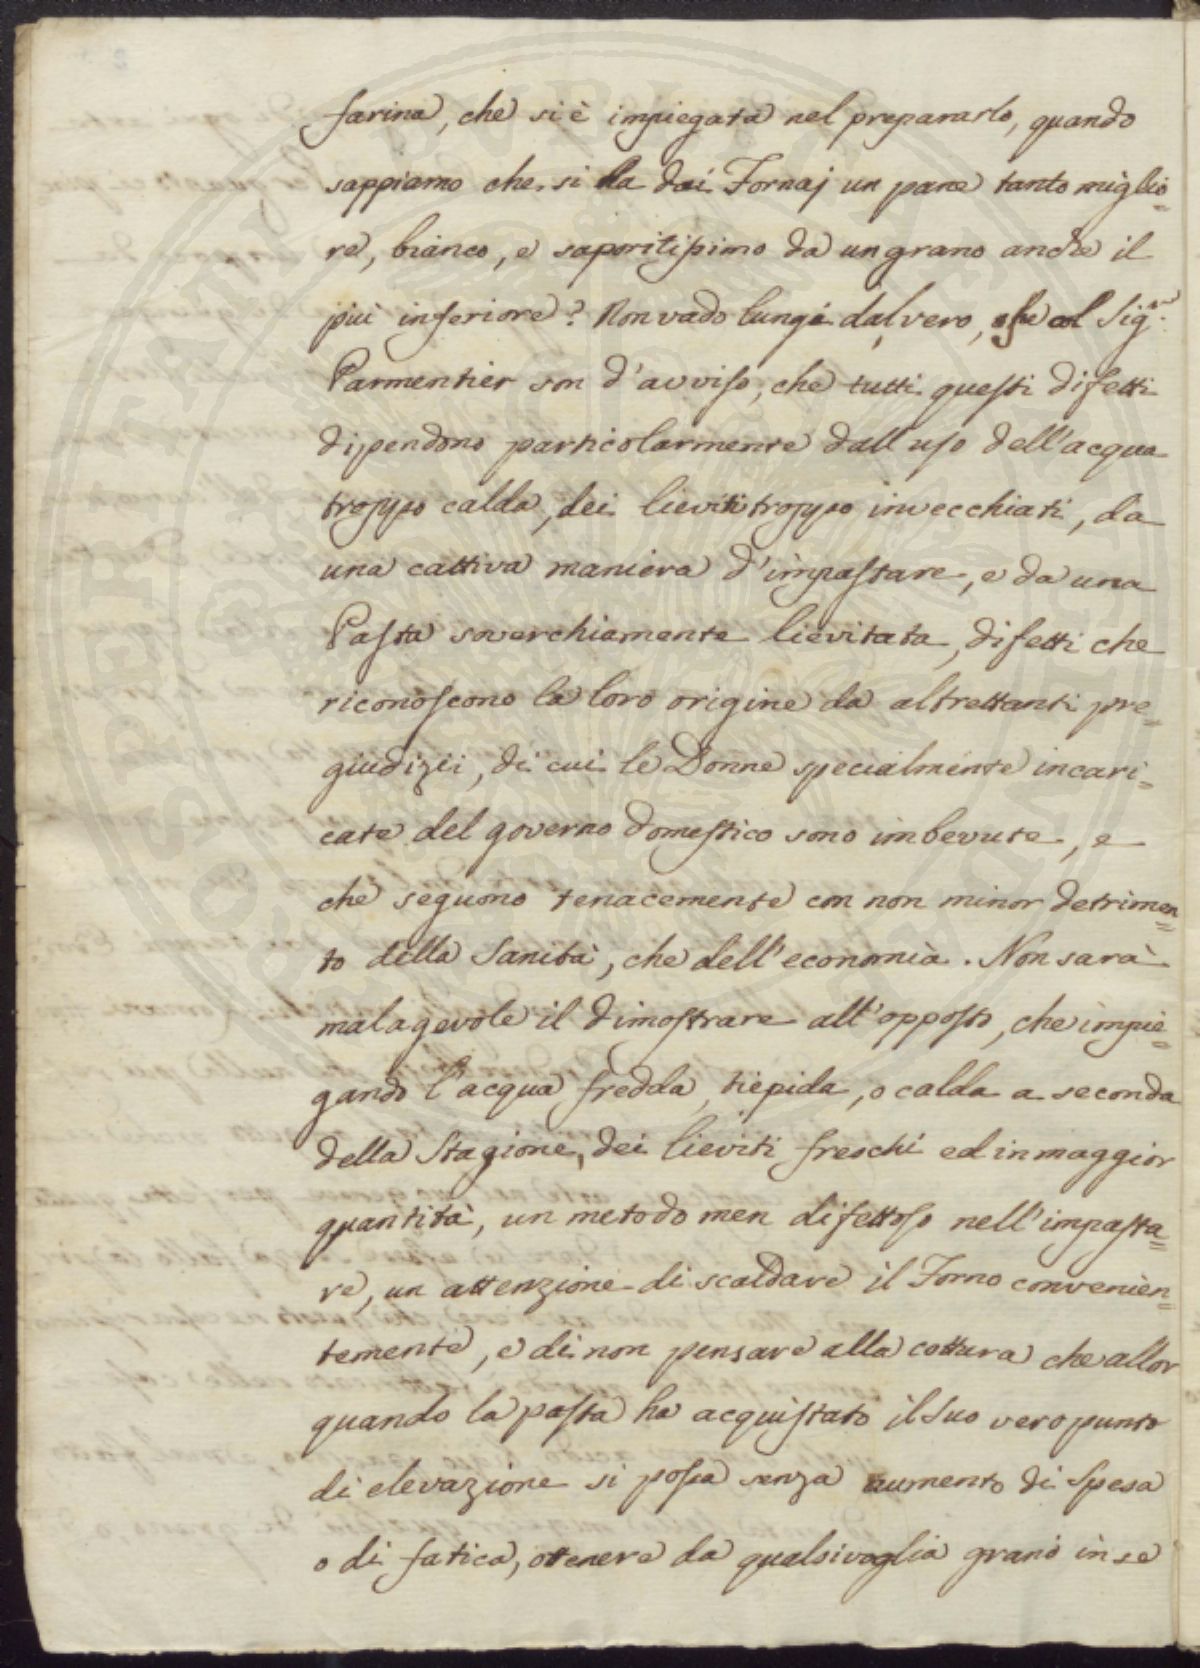 farina, che si è impiegata nel prepararlo, quando
sappiamo che si ha dai Fornaj un pane tanto miglio=
re, bianco, e saporitissimo da un grano anche il
più inferiore? Non vado lungi dal vero, se col Sig.r
Parmentier son d'avviso, che tutti questi difetti
dipendono particolarmente dall'uso dell'acqua
troppo calda, dei lieviti troppo invecchiati, da
una cattiva maniera d'impastare, e da una
Pasta soverchiamente lievitata, difetti che
riconoscono la loro origine da altrettanti pre=
giudizii, di cui le Donne specialmente incari=
cate del governo domestico sono imbevute, e
che seguono tenacemente con non minor detrimen=
to della Sanità, che dell'economia. Non sarà
malagevole il dimostrare all'opposto, che impie=
gando l'acqua fredda, tiepida, o calda a seconda
della Stagione, dei lieviti freschi ed in maggior
quantità, un metodo men difettoso nell'impasta=
re, un attenzione di scaldare il Forno convenien=
temente, e di non pensare alla cottura che allor
quando la pasta ha acquistato il suo vero punto
di elevazione si possa senza aumento di Spesa
o di fatica, ottenere da qualsivoglia grano in se